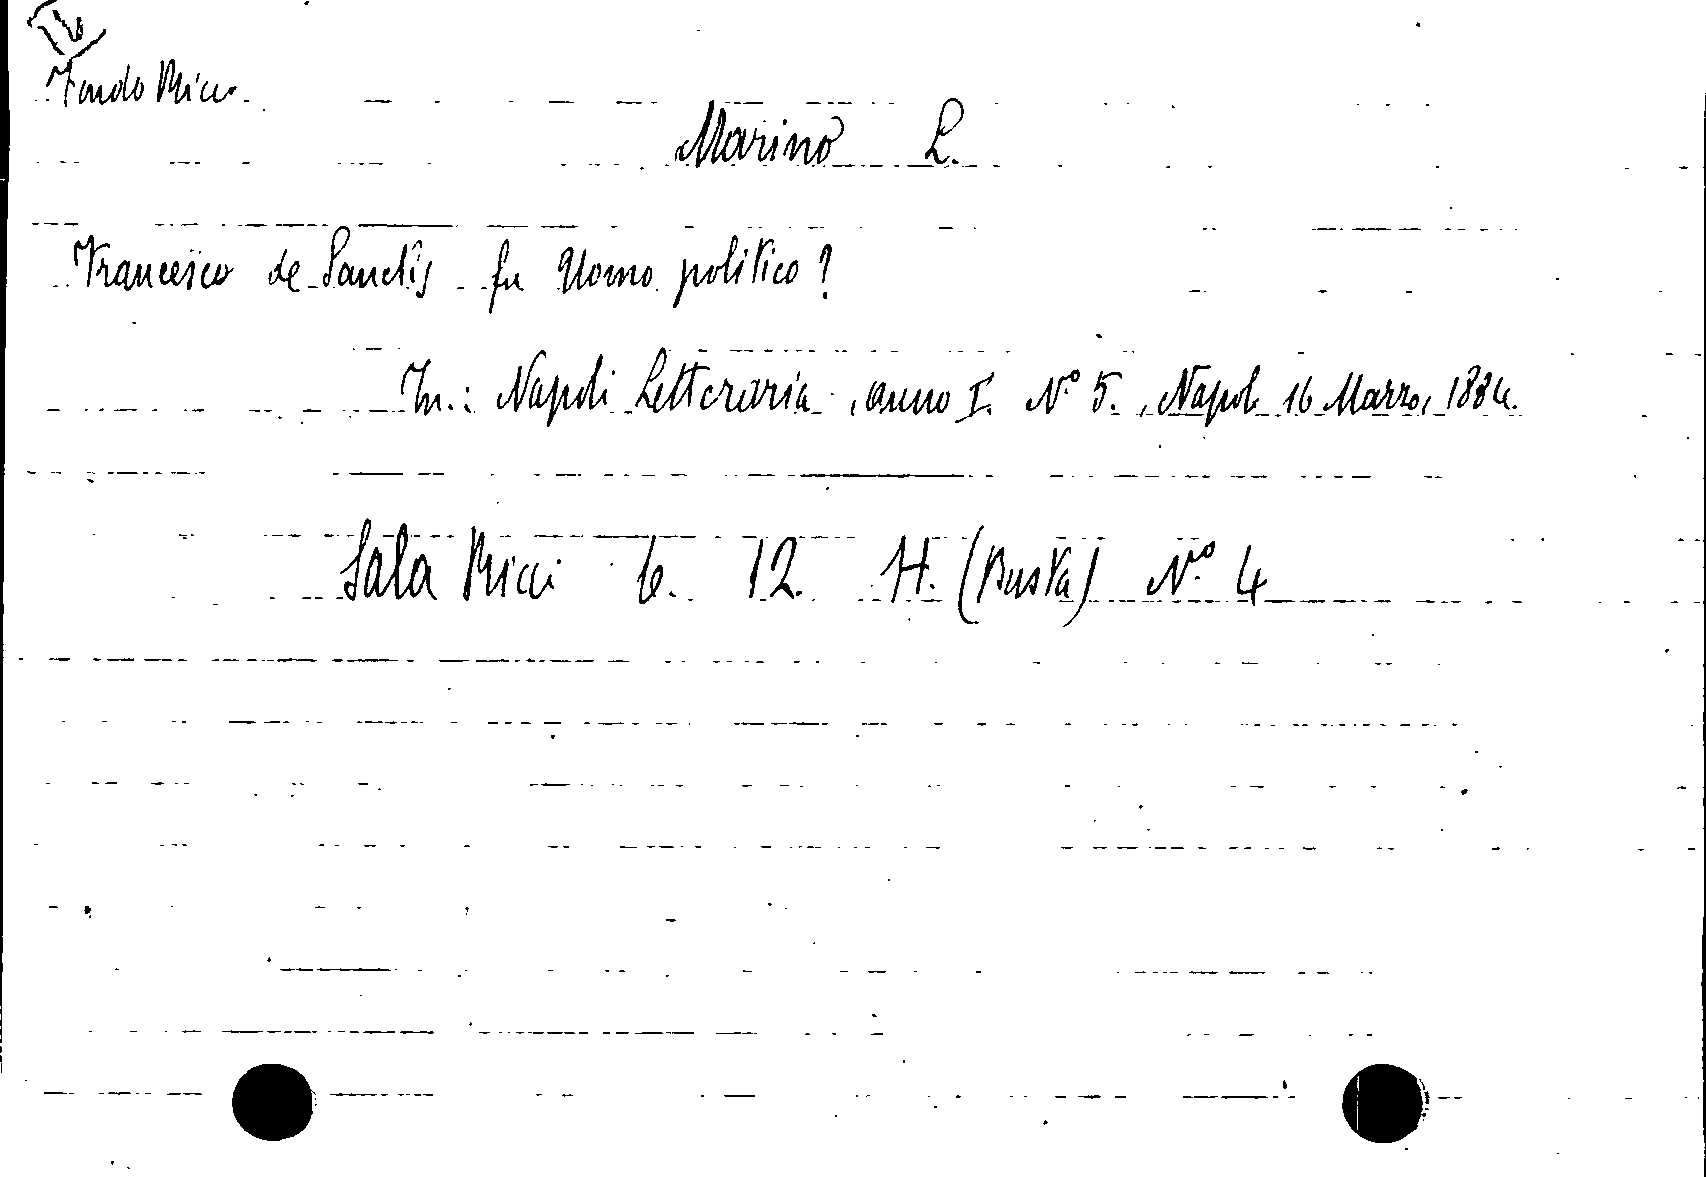 Fondo Ricci
Marino L.
Francesco de Sanctis fu Uomo politico?
In.: Napoli Letteraria, anno I. N.° 5., Napoli 16 Marzo, 1884.
Sala Ricci 6. 12. H. (Busta) N.° 4